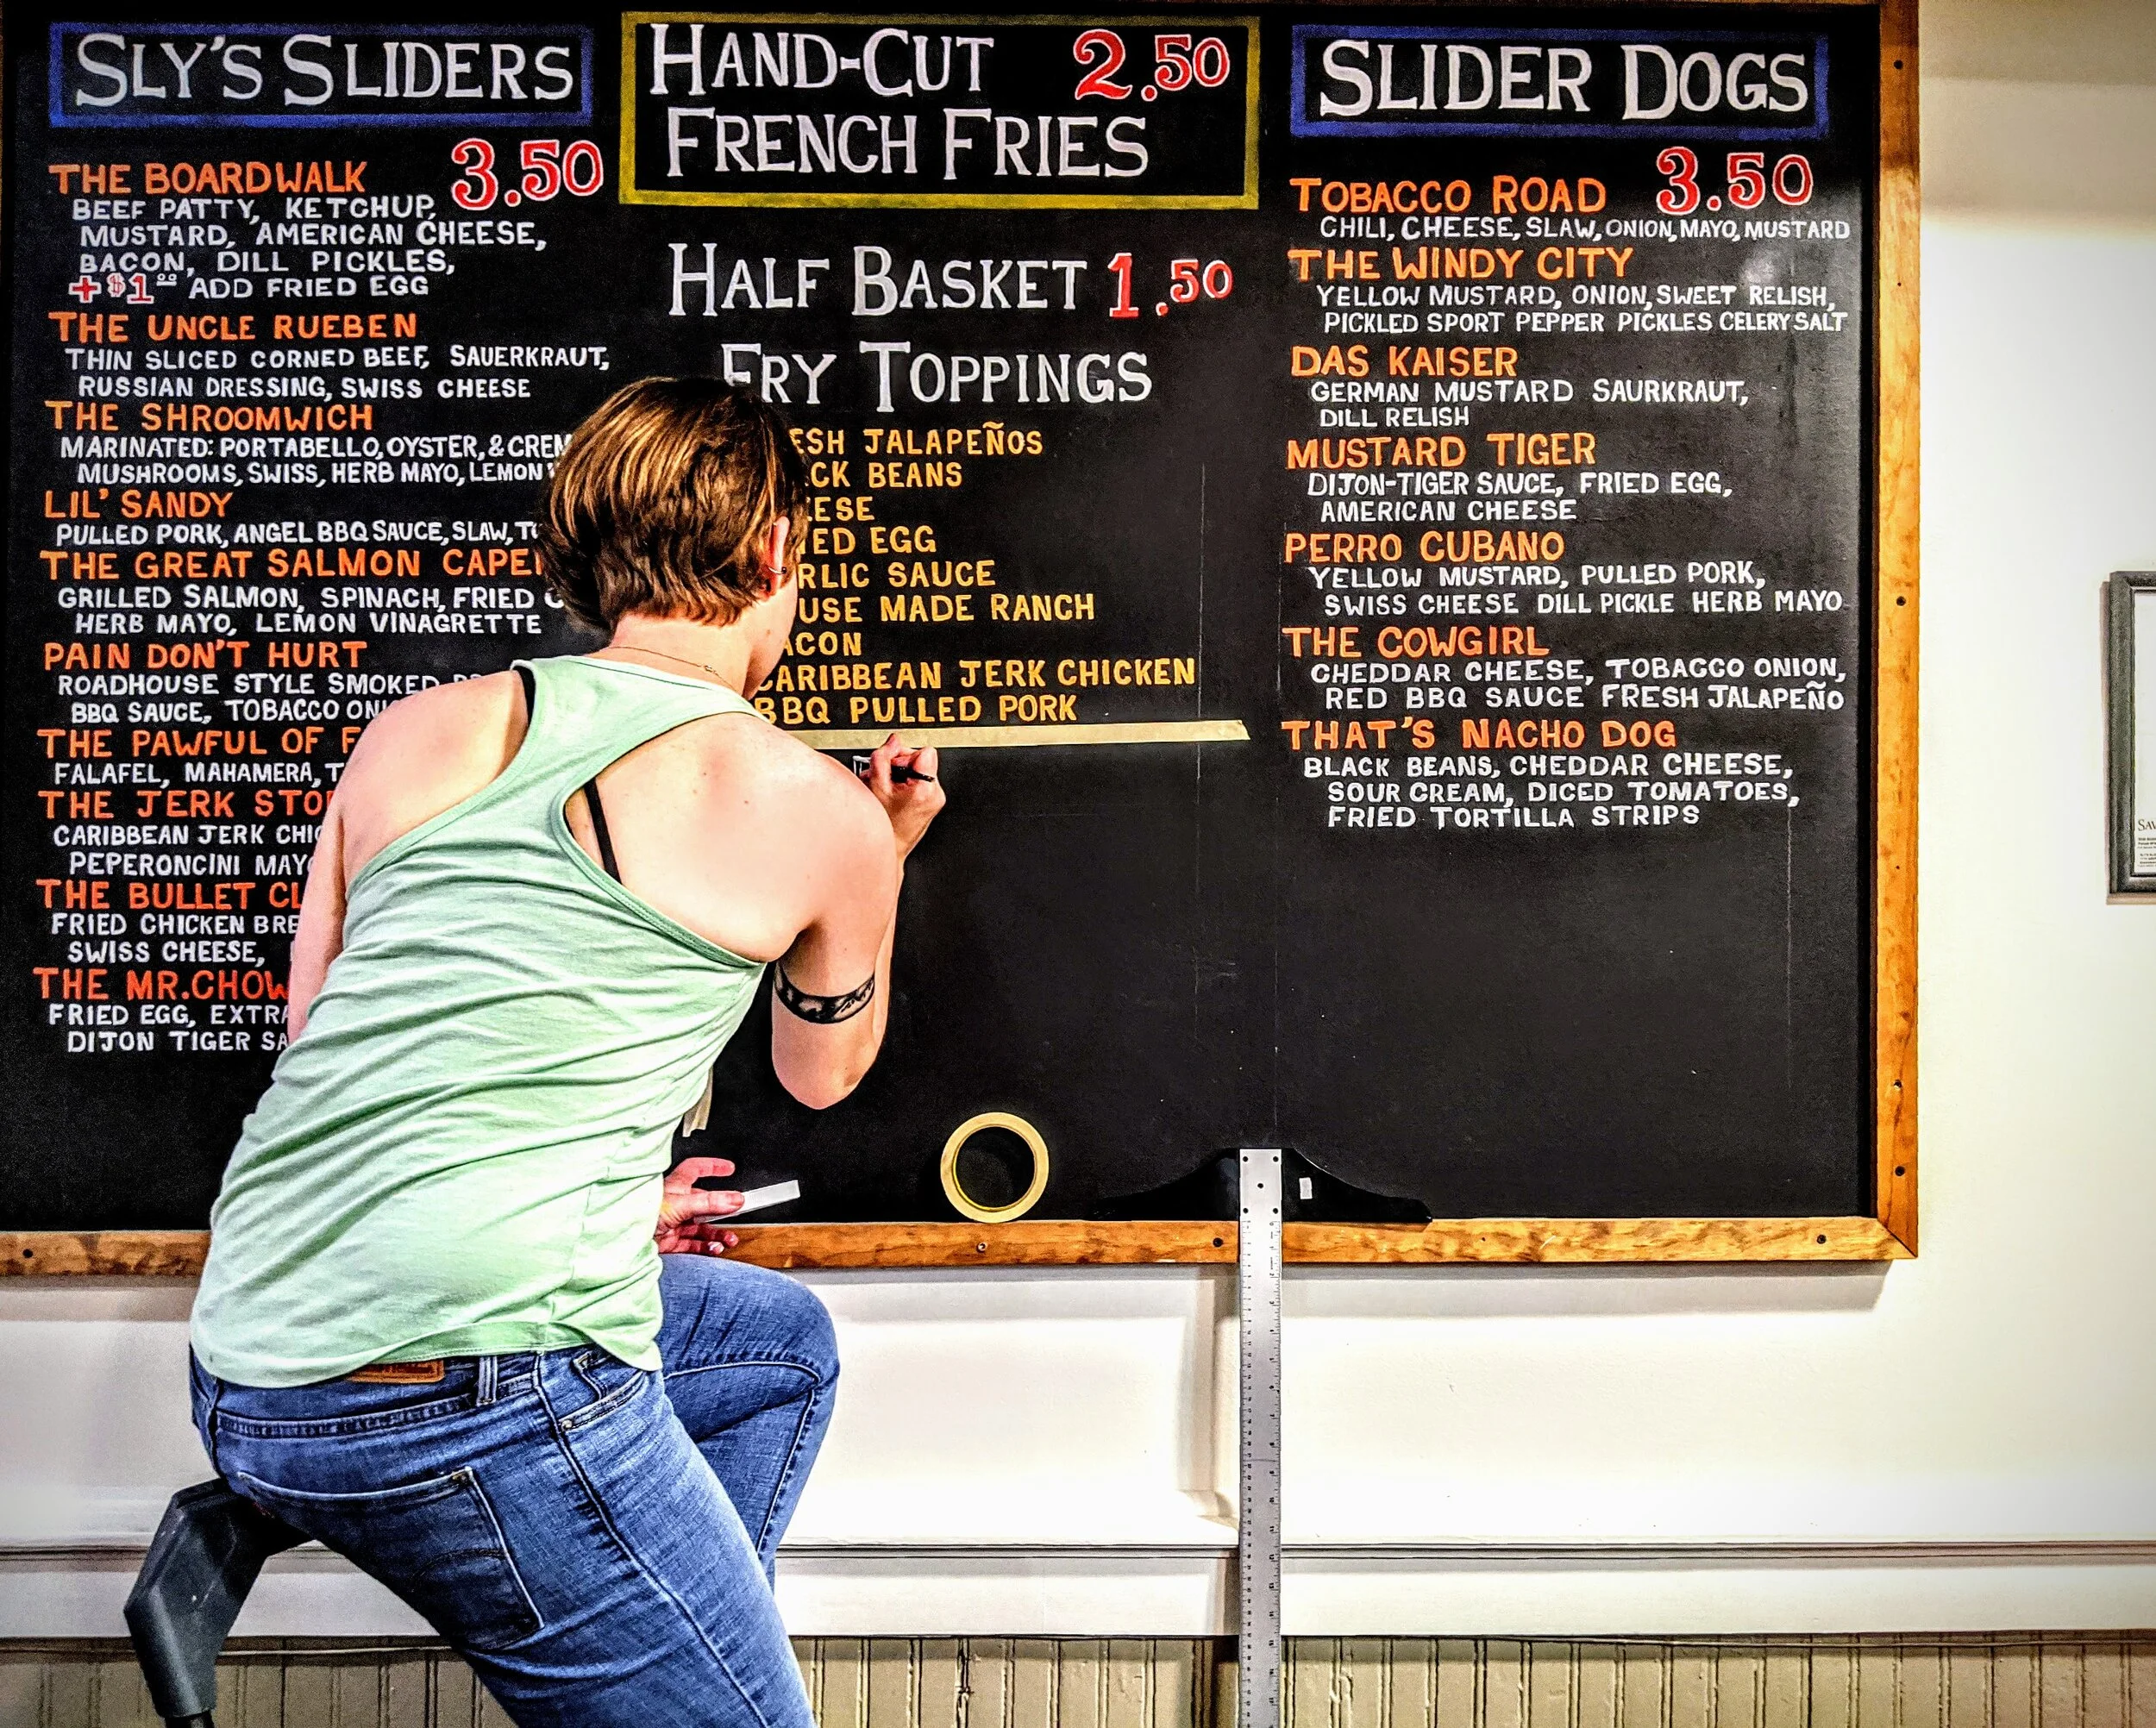 SLY'S SLIDERS
3.50
THE BOARDWALK
BEEF PATTY, KETCHUP,
MUSTARD, AMERICAN CHEESE,
BACON, DILL PICKLES,
+$1.00 ADD FRIED EGG
THE UNCLE RUEBEN
THIN SLICED CORNED BEEF, SAUERKRAUT,
RUSSIAN DRESSING, SWISS CHEESE
THE SHROOMWICH
MARINATED: PORTABELLO, OYSTER, &
MUSHROOMS, SWISS, HERB MAYO, LEMON
LIL' SANDY
PULLED PORK, ANGEL BBQ SAUCE, SLAW,
THE GREAT SALMON
GRILLED SALMON, SPINACH, FRIED
HERB MAYO, LEMON VINAGRETTE
PAIN DON'T HURT
ROADHOUSE STYLE SMOKED
BBQ SAUCE, TOBACCO
THE PAWFUL OF
FALAFEL, MAHAMERA,
THE JERK
CARIBBEAN JERK
PEPERONCINI
THE BULLET
FRIED CHICKEN
SWISS CHEESE,
THE MR.CHOW
FRIED EGG,
DIJON TIGER
HAND-CUT 2.50
FRENCH FRIES
HALF BASKET 1.50
FRY TOPPINGS
JALAPEÑOS
BEANS
EGG
SAUCE
MADE RANCH
CARIBBEAN JERK CHICKEN
BBQ PULLED PORK
SLIDER DOGS
3.50
TOBACCO ROAD
CHILI, CHEESE, SLAW, ONION, MAYO, MUSTARD
THE WINDY CITY
YELLOW MUSTARD, ONION, SWEET RELISH,
PICKLED SPORT PEPPER PICKLES CELERY SALT
DAS KAISER
GERMAN MUSTARD SAURKRAUT,
DILL RELISH
MUSTARD TIGER
DIJON-TIGER SAUCE, FRIED EGG,
AMERICAN CHEESE
PERRO CUBANO
YELLOW MUSTARD, PULLED PORK,
SWISS CHEESE DILL PICKLE HERB MAYO
THE COWGIRL
CHEDDAR CHEESE, TOBACCO ONION,
RED BBQ SAUCE FRESH JALAPEÑO
THAT'S NACHO DOG
BLACK BEANS, CHEDDAR CHEESE,
SOUR CREAM, DICED TOMATOES,
FRIED TORTILLA STRIPS